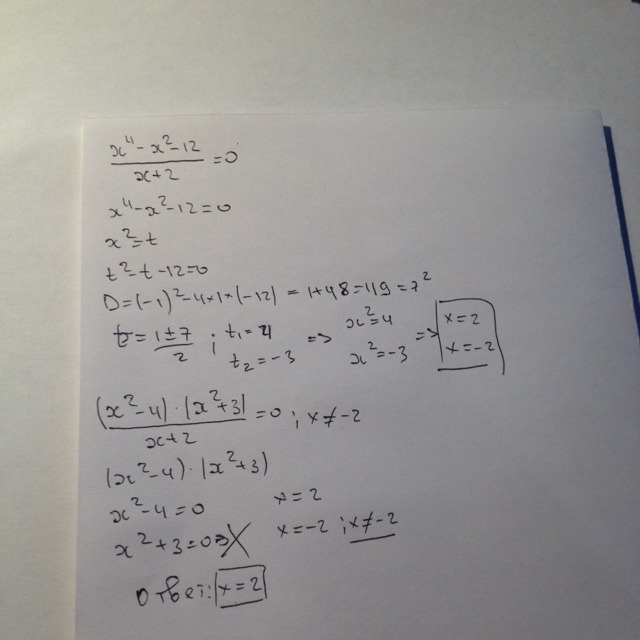 x⁴-x²-12 / x+2 =0
x⁴-x²-12=0
x²=t
t²-t-12=0
D=(-1)²-4×1×(-12) = 1+48=119=7²
t=1±7/2 ; t₁=4 => x²=4 => x=2
t₂=-3 x²=-3 x=-2
(x²-4)·|x²+3| / x+2 =0 ; x≠-2
(x²-4)·|x²+3)
x²-4=0 x=2
x²+3=0=>X x=-2 ; x≠-2
Ответ: x=2